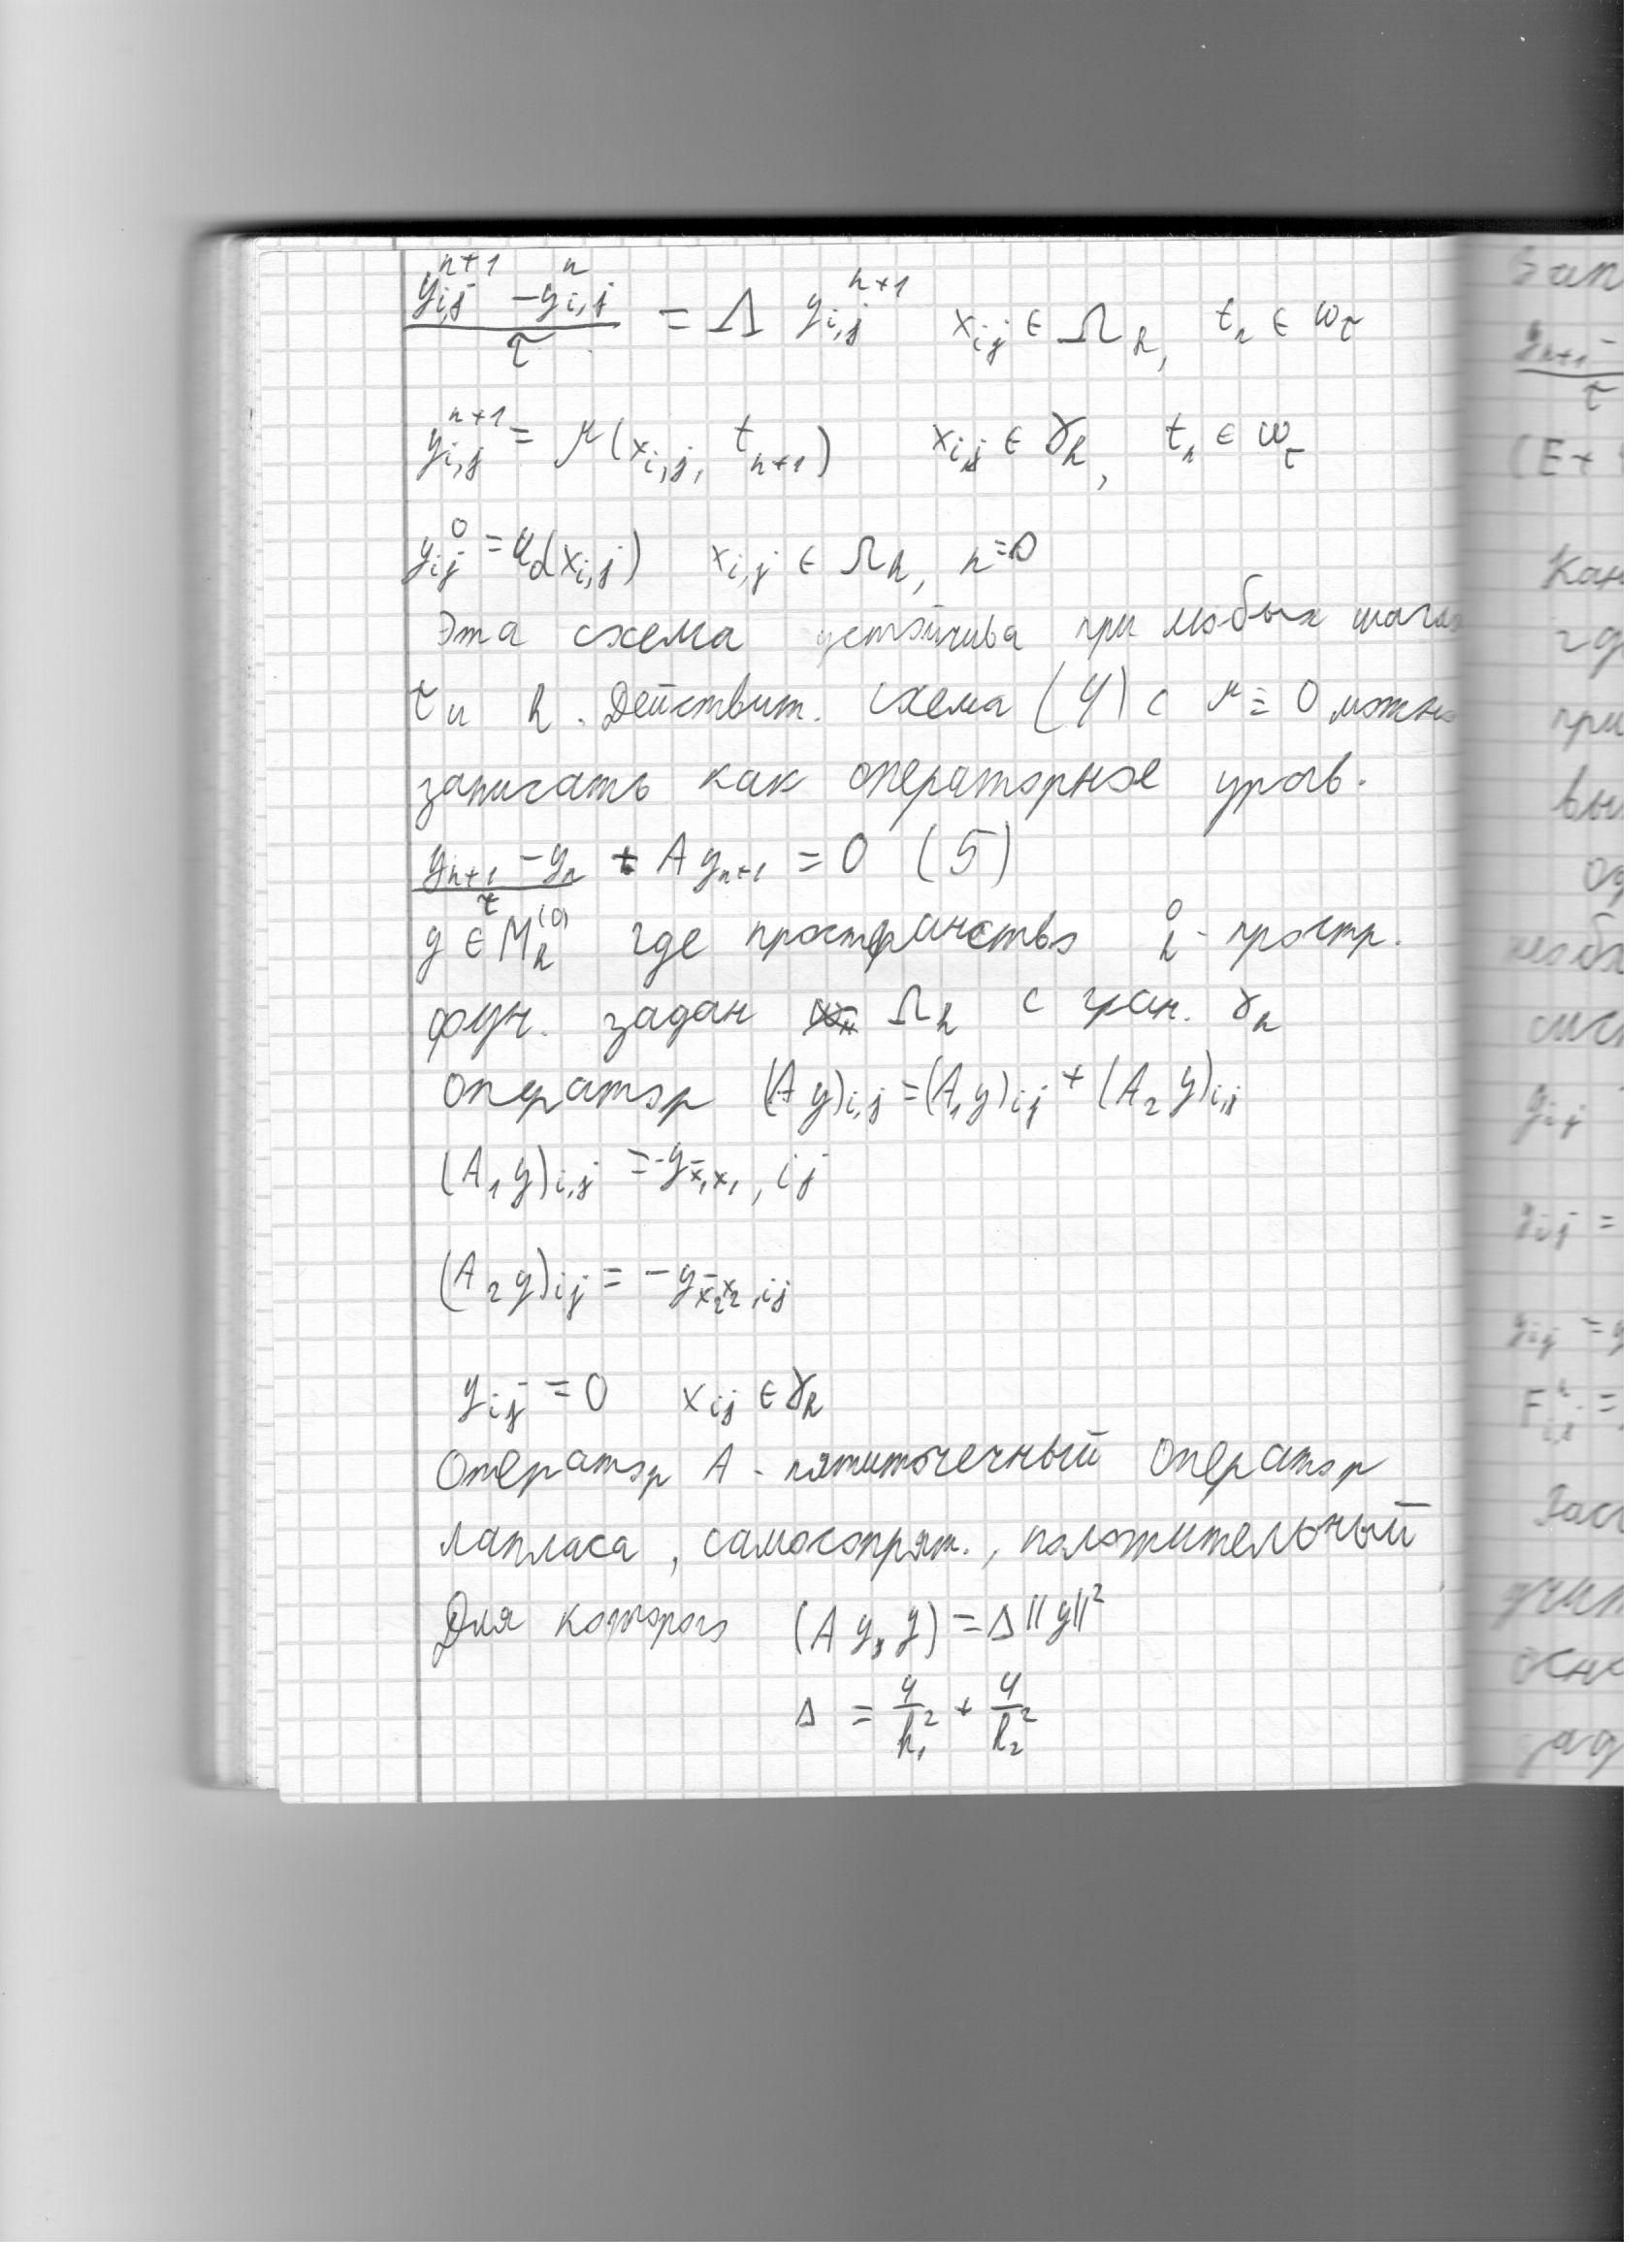 (y_{i,j}^{n+1} - y_{i,j}^{n}) / τ = Λ y_{i,j}^{n+1} x_{ij} ∈ Ω_h, t_n ∈ ω_τ
y_{i,j}^{n+1} = μ(x_{i,j}, t_{n+1}) x_{i,j} ∈ γ_h, t_n ∈ ω_τ
y_{ij}^0 = u_0(x_{i,j}) x_{i,j} ∈ Ω_h, n=0
Эта схема устойчива при любых шагах
τ и h. Действит. схема (4) с μ = 0 можно
записать как операторное урав.
(y_{n+1} - y_n) / τ + A y_{n+1} = 0 (5)
y ∈ M_h^{(0)} где пространство - простр.
фун. задан Ω_h с гран. γ_h
оператор (Ay)_{i,j} = (A_1 y)_{ij} + (A_2 y)_{i,j}
(A_1 y)_{i,j} = -y_{x̄_1x_1, ij}
(A_2 y)_{ij} = -y_{x̄_2x_2, ij}
y_{ij} = 0 x_{ij} ∈ γ_h
Оператор A - пятиточечный оператор
лапласа, самосопряж., положительный
Для которого (Ay, y) = Δ||y||^2
Δ = 4/h_1^2 + 4/h_2^2